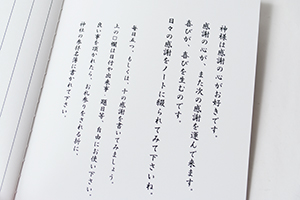 神様は感謝の心がお好きです。
感謝の心が、また次の感謝を運んで来ます。
喜びが、喜びを生むのです。
日々の感謝をノートに綴られてみて下さいね。
毎日五つ、もしくは、十の感謝を書いてみましょう。
上の○欄は日付や出来事、題目等、自由にお使い下さい。
良い事を頂かれたら、お礼参りをされる折に、
神社の参拝名簿に書かれて下さい。